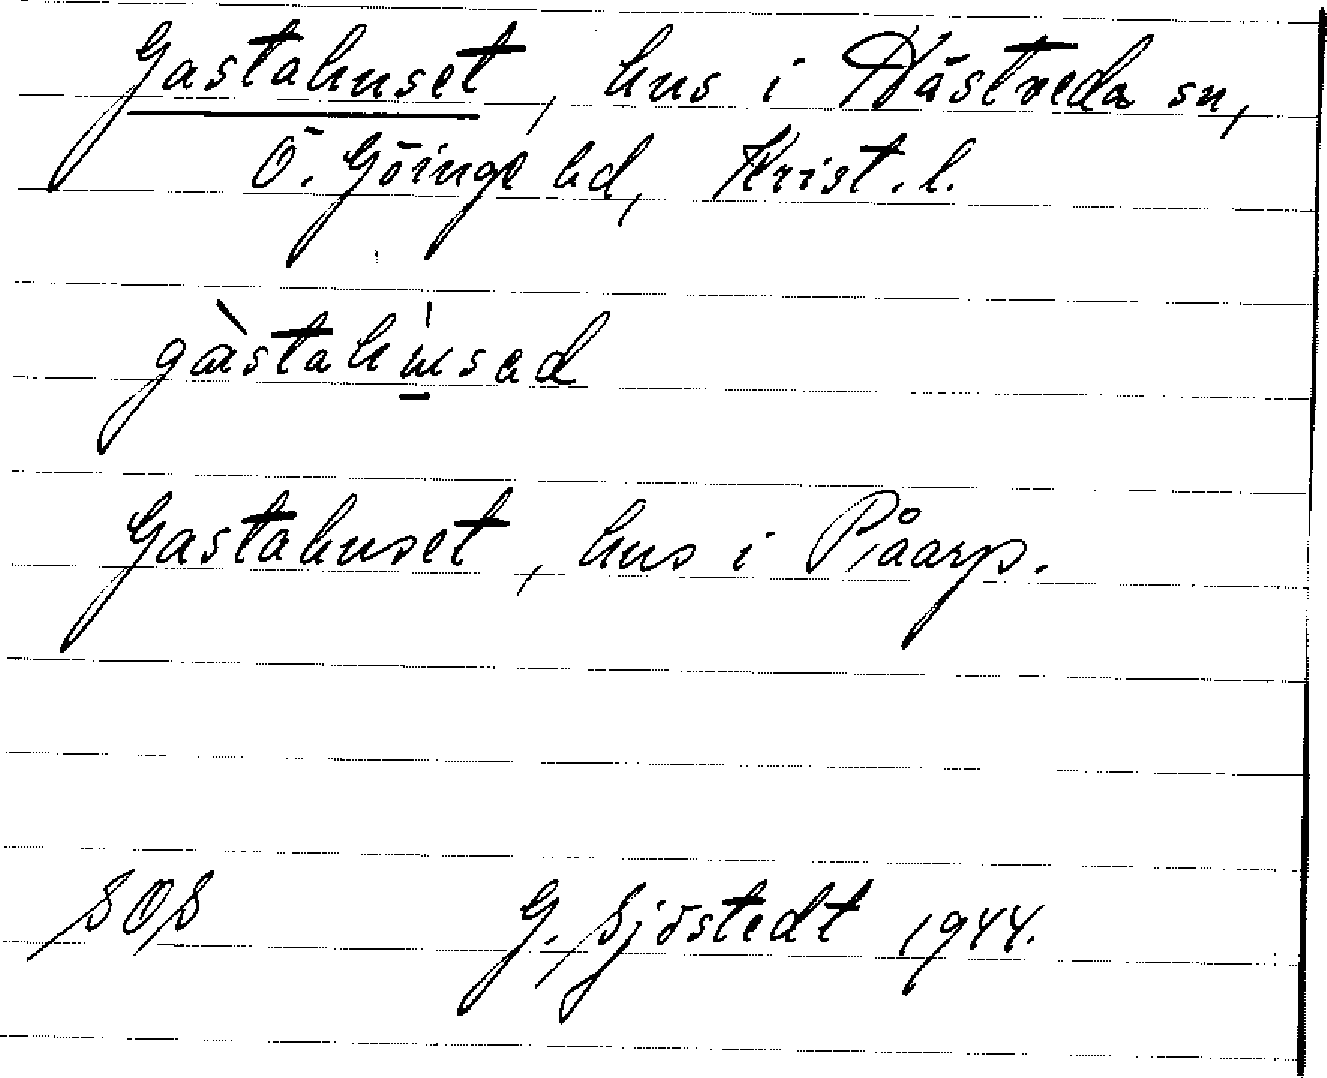 Gastahuset, hus i Hästveda sn,
Ö. Göinge hd, Krist. l.
gàstahu̱sad
Gastahuset, hus i Påarp.
SOS G. Sjöstedt 1944.